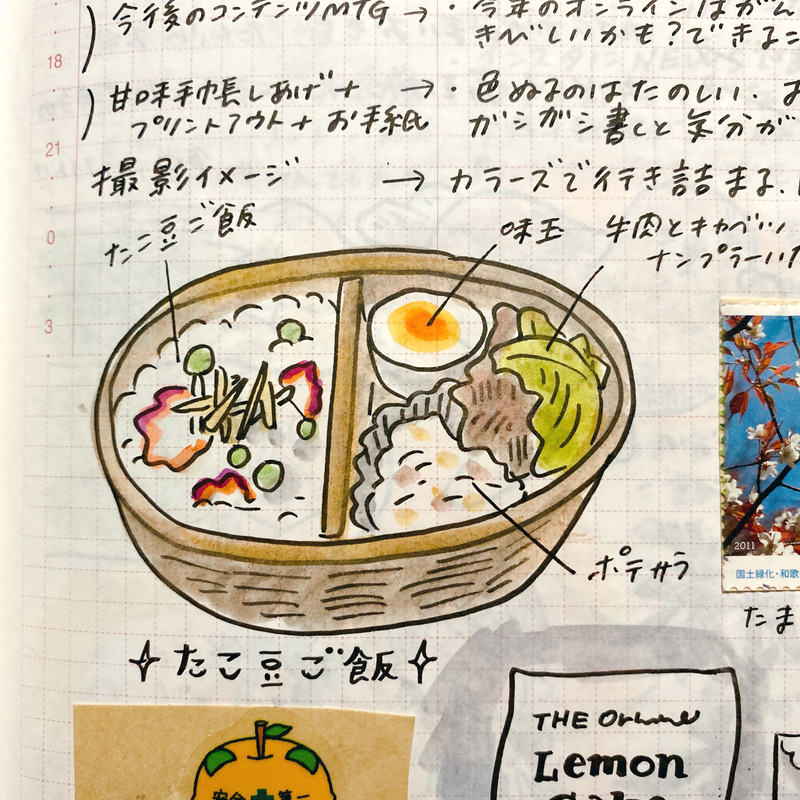 今後のコンテンツMTG → ・今年のオンラインはがん
きびしいかも?できるこ
18
甘味手帳しあげ+ → ・色ぬるのはたのしい。お
プリントアウト+お手紙 ガシガシ書くと気分が
21
撮影イメージ → カラーズで行き詰まる.
0
たこ豆ご飯
味玉
牛肉とキャベツ
ナンプラーいた
3
ポテサラ
2011
国土緑化・和歌
たま
たこ豆ご飯
THE
Lemon
安全+第一